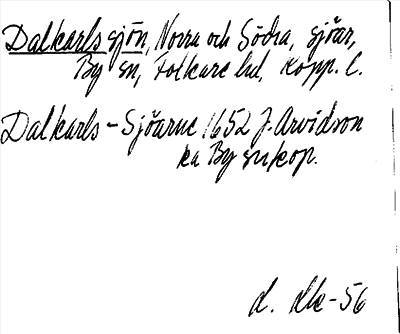 Dalkarlssjön, Norra och Södra, sjöar,
By sn, Folkare hd, Kopp. l.
Dalkarls-Sjöarne 1652 J. Arvidson
ka By snkop.
d. dk-56